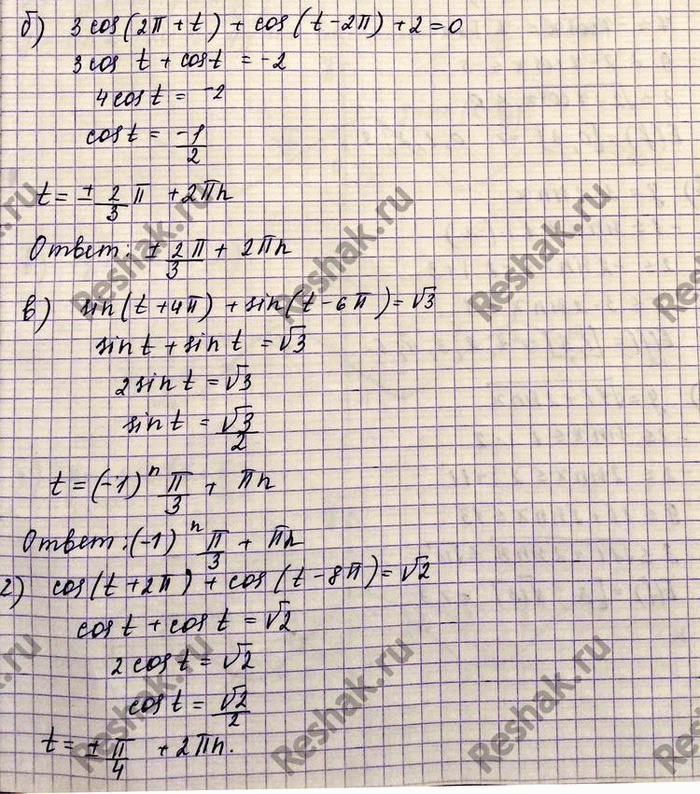 б) 3 cos(2π + t) + cos(t - 2π) + 2 = 0
3 cos t + cos t = -2
4 cos t = -2
cos t = -1/2
t = ± 2/3 π + 2πn
Ответ: ± 2π/3 + 2πn
в) sin(t + 4π) + sin(t - 6π) = √3
sin t + sin t = √3
2 sin t = √3
sin t = √3/2
t = (-1)ⁿ π/3 + πn
Ответ: (-1)ⁿ π/3 + πn
г) cos(t + 2π) + cos(t - 8π) = √2
cos t + cos t = √2
2 cos t = √2
cos t = √2/2
t = ± π/4 + 2πn.
Reshak.ru
Reshak.ru
Reshak.ru
Reshak.ru
Reshak.ru
Reshak.ru